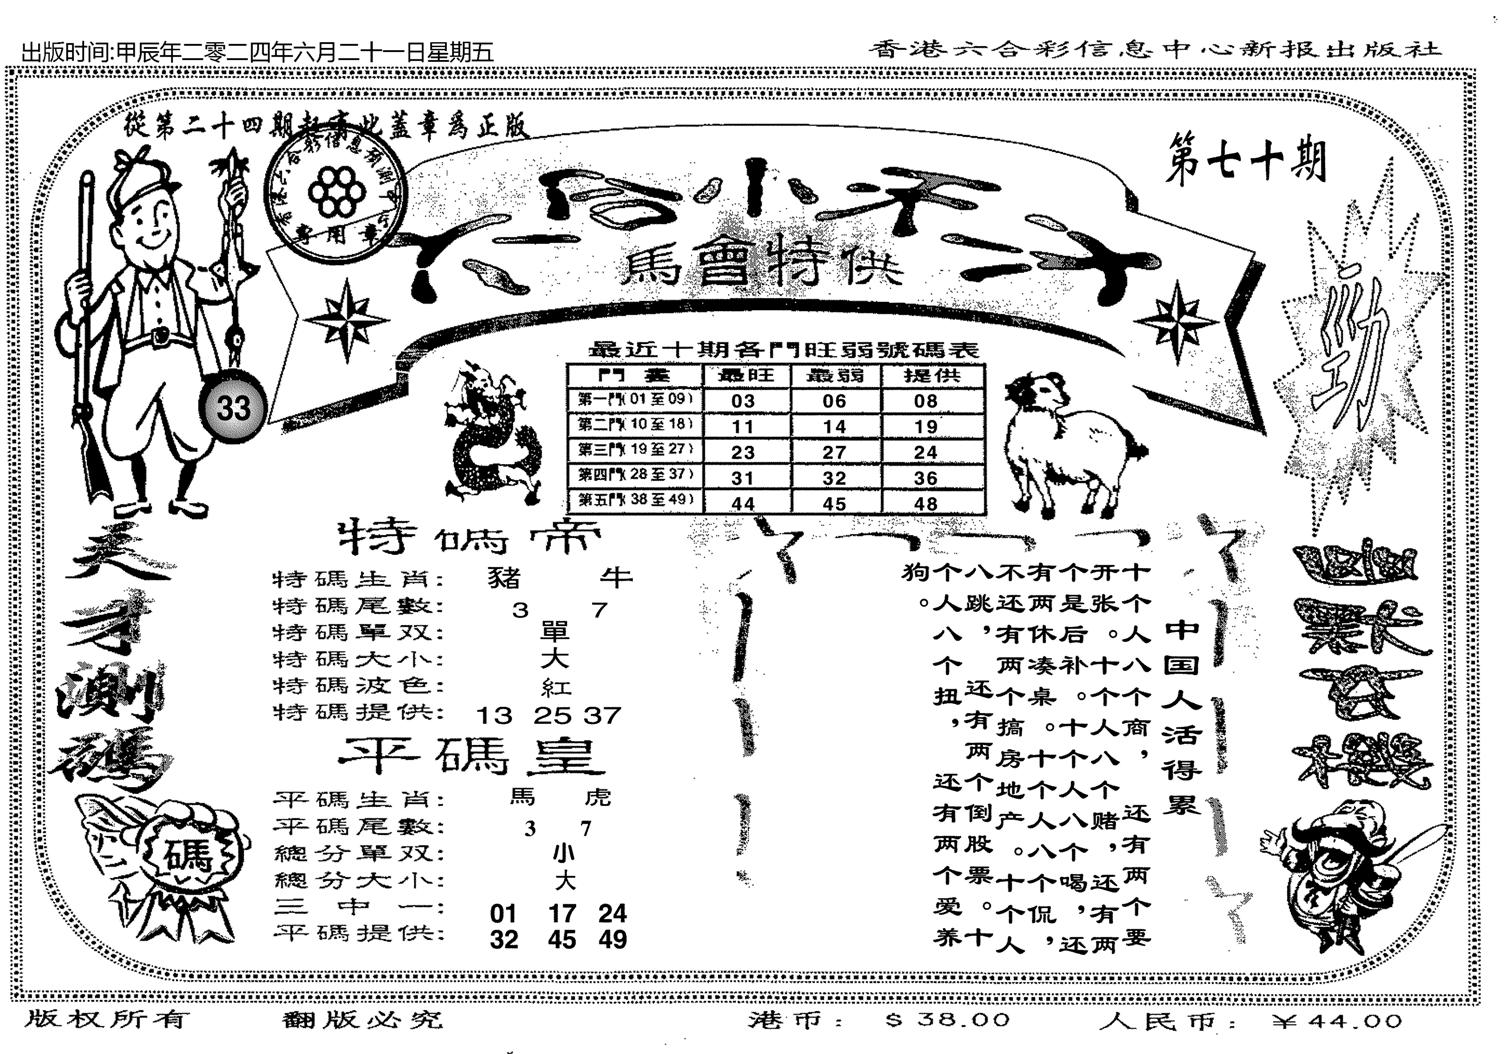 出版时间:甲辰年二零二四年六月二十一日星期五
香港六合彩信息中心新报出版社
從第二十四期起有此蓋章爲正版
香港六合彩信息預測中心
專用章
第七十期
六合小天才
馬會特供
勁
33
最近十期各門旺弱號碼表
門 最旺 最弱 提供
第一門(01至09) 03 06 08
第二門(10至18) 11 14 19
第三門(19至27) 23 27 24
第四門(28至37) 31 32 36
第五門(38至49) 44 45 48
天才測碼
碼
特碼帝
特碼生肖: 豬 牛
特碼尾數: 3 7
特碼單双: 單
特碼大小: 大
特碼波色: 紅
特碼提供: 13 25 37
平碼皇
平碼生肖: 馬 虎
平碼尾數: 3 7
總分單双: 小
總分大小: 大
三中一: 01 17 24
平碼提供: 32 45 49
中国人活得累
十个人八个商，还有两个要
开张。十个人八个赌，还有两
个是后补。十个人八个喝，还
有两休凑桌。十个人八个侃，
不还有两个搞房地产。十个人
八跳，还有两个倒股票。十
个人八个扭，还有两个爱养
狗。
版权所有
翻版必究
港币: $38.00
人民币: ￥44.00